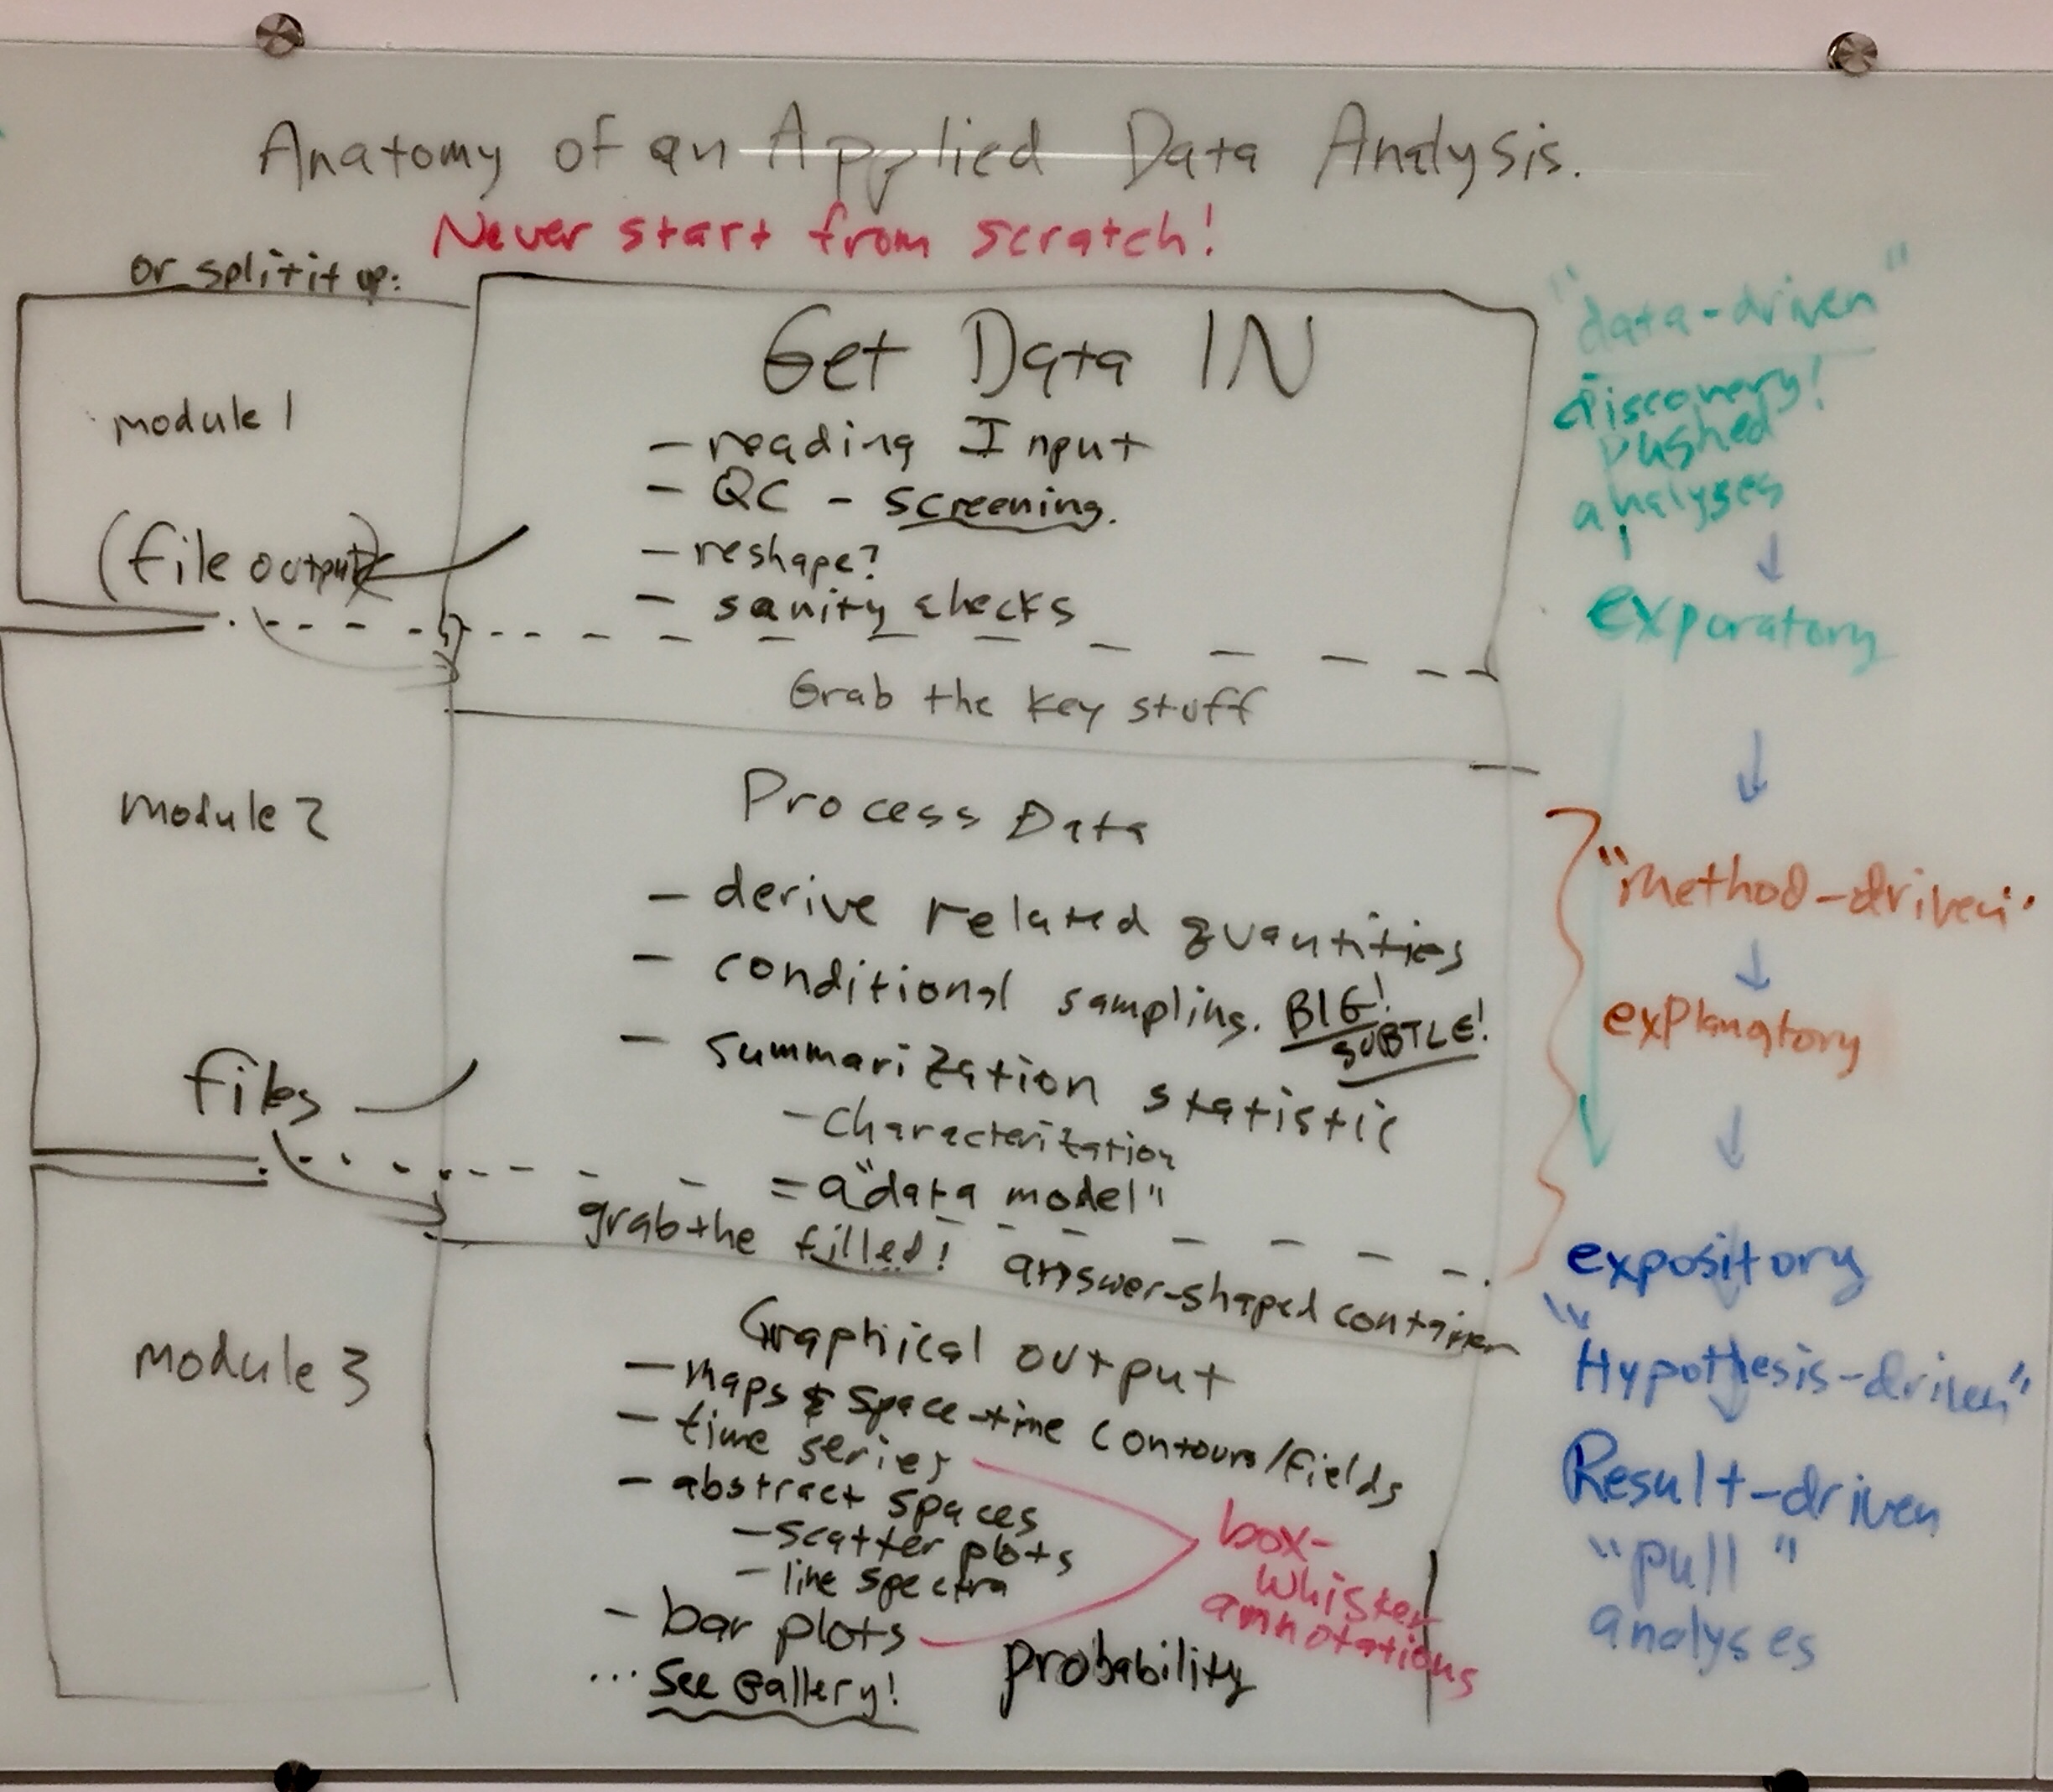 Anatomy of an Applied Data Analysis.
Never start from scratch!
or split it up:
module 1
(file output)
module 2
files
module 3
Get Data IN
- reading Input
- QC - screening.
- reshape?
- sanity checks
Grab the key stuff
Process Data
- derive related quantities
- conditional sampling. BIG!
SUBTLE!
- summarization statistic
- characterization
= a "data model"
grab the filled! answer-shaped container
Graphical output
- maps & space-time contours/fields
- time series
- abstract spaces
- scatter plots
- line spectra
- bar plots
... See Gallery!
probability
box-
whisker
annotations
"data-driven"
discovery!
pushed
analyses
exporatory
"method-driven"
explanatory
expository
"Hypothesis-driven"
Result-driven
"pull"
analyses